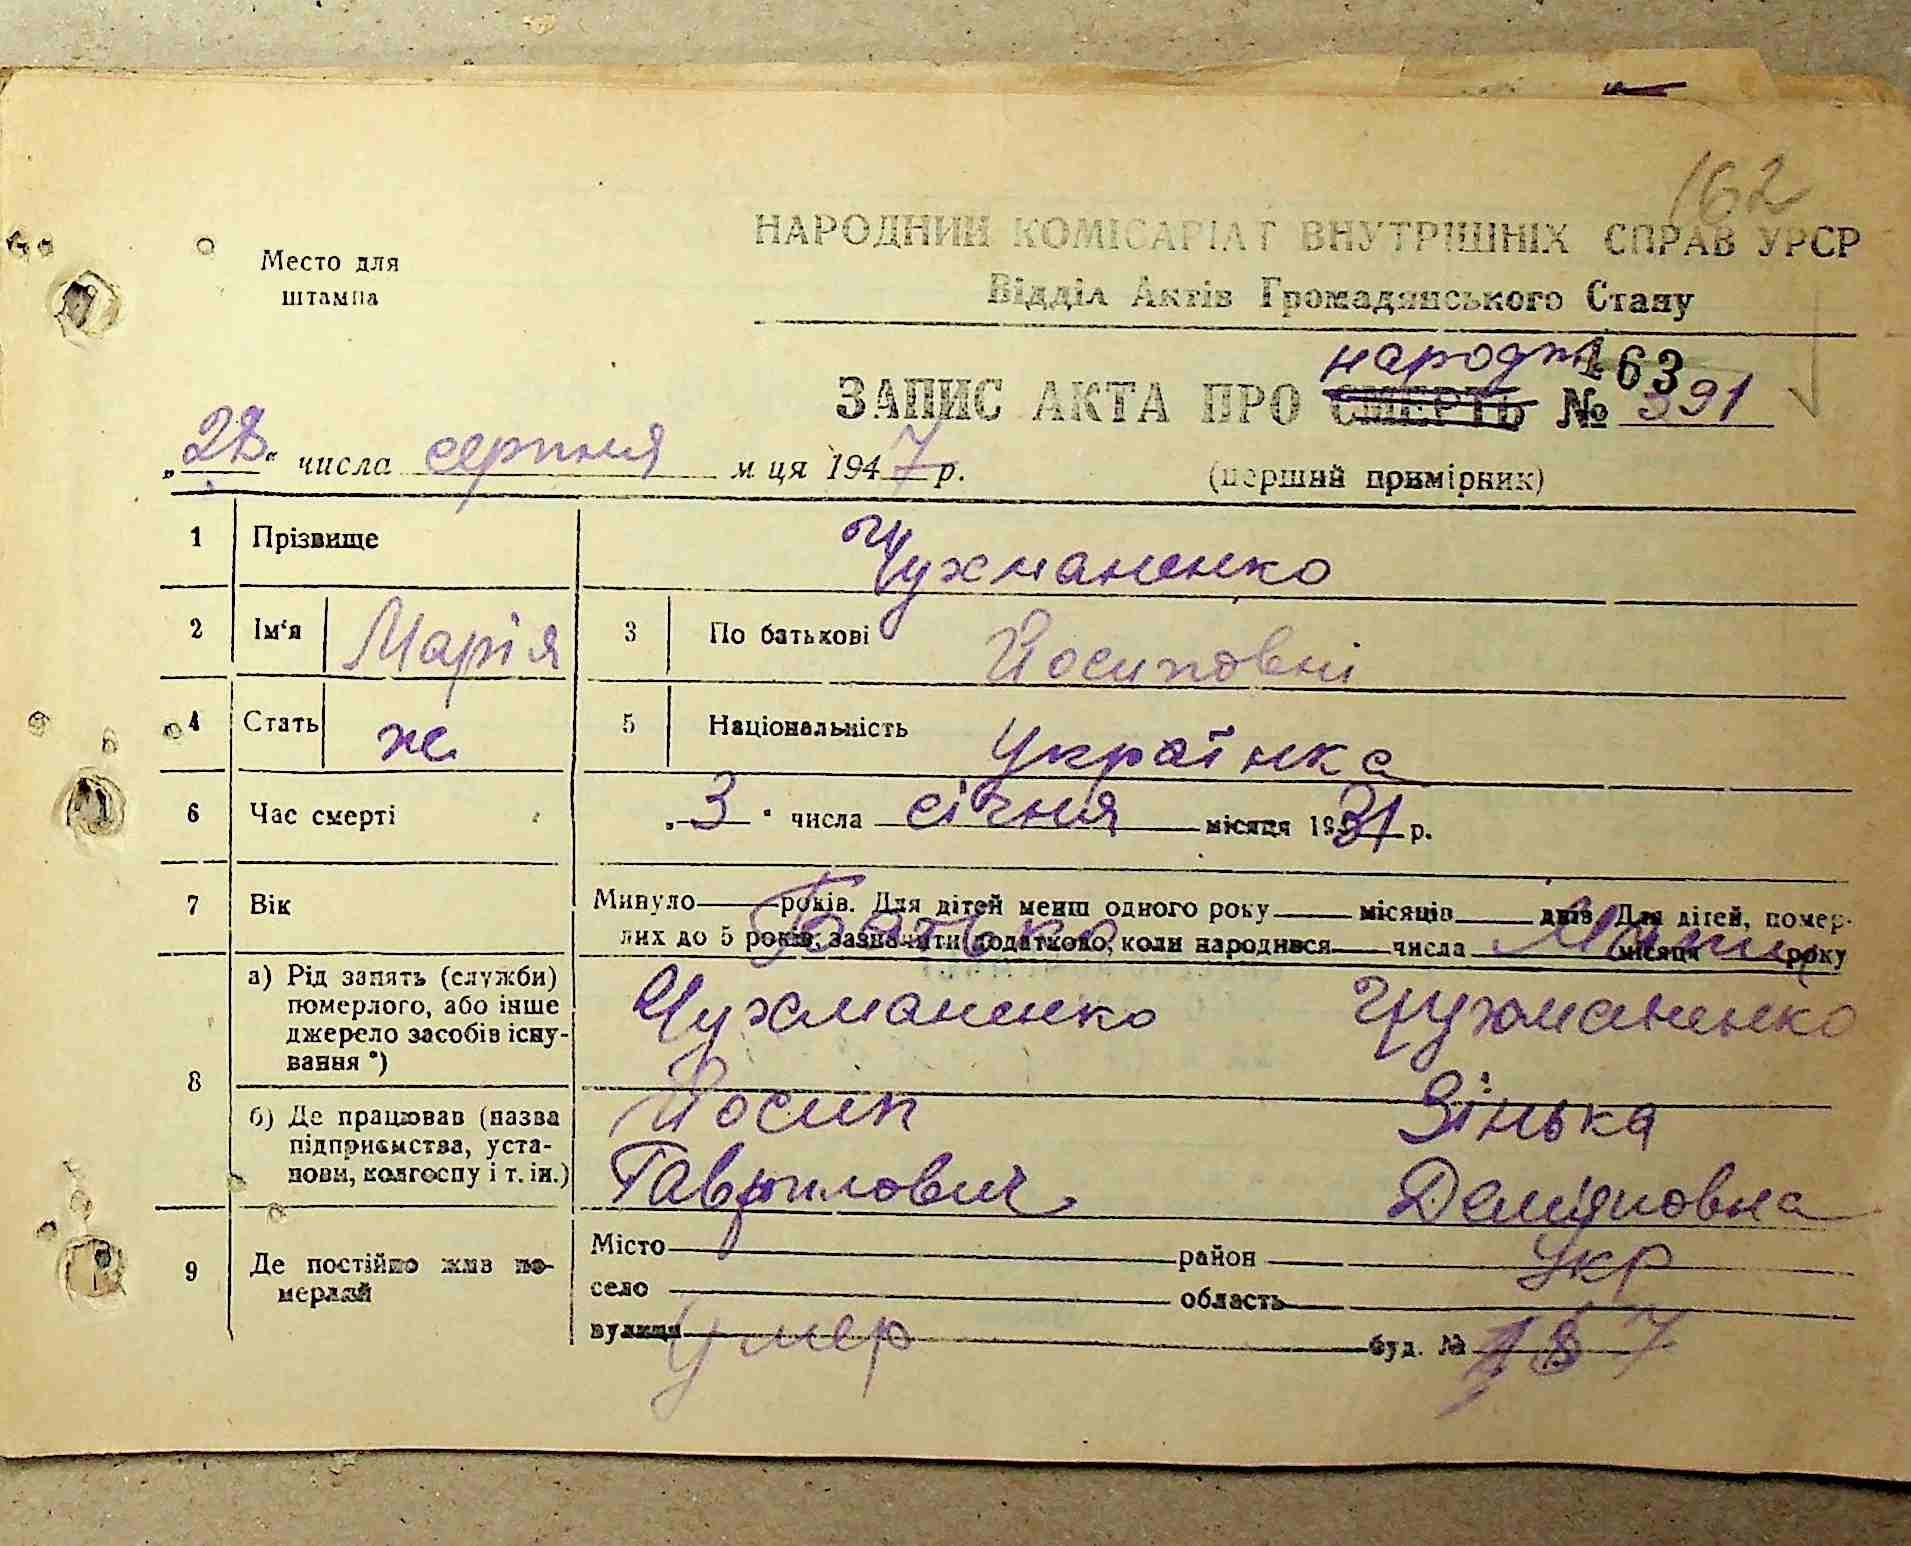 162
НАРОДНИЙ КОМІСАРІАТ ВНУТРІШНІХ СПРАВ УРСР
Место для штампа
Відділ Актів Громадянського Стану
народж 163
ЗАПИС АКТА ПРО СМЕРТЬ № 391
„28“ числа серпня м ця 1947 р. (перший примірник)
1 Прізвище Чухманенко
2 Ім‘я Марія 3 По батькові Йосиповні
4 Стать ж 5 Національність українка
6 Час смерті „3“ числа січня місяця 1931 р.
7 Вік Минуло років. Для дітей менш одного року місяців днів. Для дітей, помер-
лих до 5 років, зазначити додатково, коли народився числа місяця року
Батько Мати
8 а) Рід занять (служби) померлого, або інше джерело засобів існування *) Чухманенко Чухманенко
Йосип Зінька
б) Де працював (назва підприємства, установи, колгоспу і т. ін.) Гаврилович Демідовна
9 Де постійно жив померлий Місто район укр
село область
вулиця умер буд. № 187